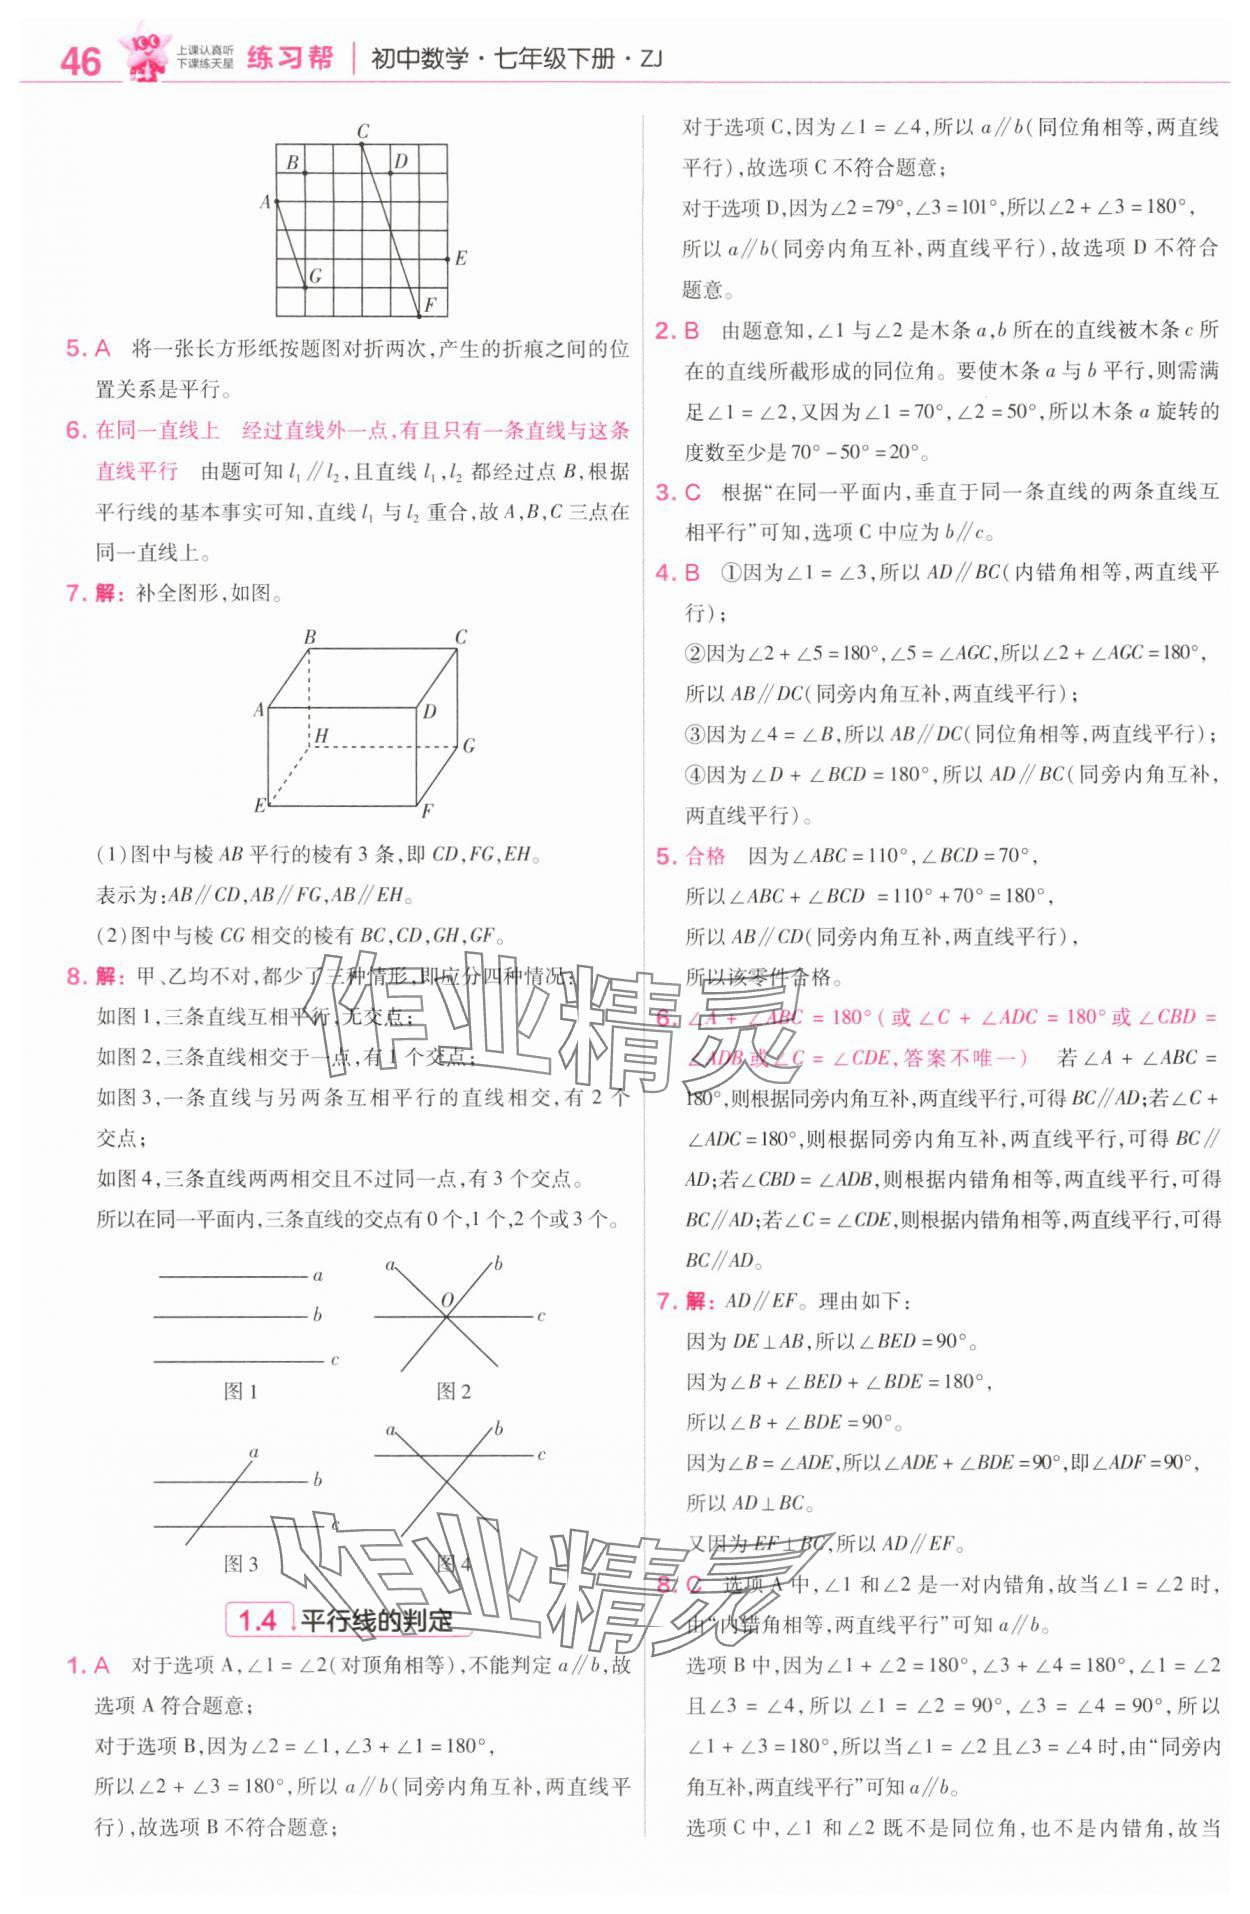 46
上课认真听
下课练天星
练习帮
初中数学·七年级下册·ZJ
C
B
D
A
E
G
F
5. A 将一张长方形纸按题图对折两次,产生的折痕之间的位
置关系是平行。
6. 在同一直线上 经过直线外一点,有且只有一条直线与这条
直线平行 由题可知 l₁∥l₂,且直线 l₁,l₂ 都经过点 B,根据
平行线的基本事实可知,直线 l₁ 与 l₂ 重合,故 A,B,C 三点在
同一直线上。
7. 解: 补全图形,如图。
B
C
A
D
H
G
E
F
(1)图中与棱 AB 平行的棱有 3 条,即 CD,FG,EH。
表示为:AB∥CD,AB∥FG,AB∥EH。
(2)图中与棱 CG 相交的棱有 BC,CD,GH,GF。
8. 解: 甲、乙均不对,都少了三种情形,即应分四种情况:
如图 1,三条直线互相平行,无交点;
如图 2,三条直线相交于一点,有 1 个交点;
如图 3,一条直线与另两条互相平行的直线相交,有 2 个
交点;
如图 4,三条直线两两相交且不过同一点,有 3 个交点。
所以在同一平面内,三条直线的交点有 0 个,1 个,2 个或 3 个。
a
b
c
图 1
a
b
O
c
图 2
a
b
c
图 3
a
b
c
图 4
1.4 平行线的判定
1. A 对于选项 A,∠1 = ∠2(对顶角相等),不能判定 a∥b,故
选项 A 符合题意;
对于选项 B,因为∠2 = ∠1,∠3 + ∠1 = 180°,
所以∠2 + ∠3 = 180°,所以 a∥b(同旁内角互补,两直线平
行),故选项 B 不符合题意;
对于选项 C,因为∠1 = ∠4,所以 a∥b(同位角相等,两直线
平行),故选项 C 不符合题意;
对于选项 D,因为∠2 = 79°,∠3 = 101°,所以∠2 + ∠3 = 180°,
所以 a∥b(同旁内角互补,两直线平行),故选项 D 不符合
题意。
2. B 由题意知,∠1 与∠2 是木条 a,b 所在的直线被木条 c 所
在的直线所截形成的同位角。要使木条 a 与 b 平行,则需满
足∠1 = ∠2,又因为∠1 = 70°,∠2 = 50°,所以木条 a 旋转的
度数至少是 70° - 50° = 20°。
3. C 根据“在同一平面内,垂直于同一条直线的两条直线互
相平行”可知,选项 C 中应为 b∥c。
4. B ①因为∠1 = ∠3,所以 AD∥BC(内错角相等,两直线平
行);
②因为∠2 + ∠5 = 180°,∠5 = ∠AGC,所以∠2 + ∠AGC = 180°,
所以 AB∥DC(同旁内角互补,两直线平行);
③因为∠4 = ∠B,所以 AB∥DC(同位角相等,两直线平行);
④因为∠D + ∠BCD = 180°,所以 AD∥BC(同旁内角互补,
两直线平行)。
5. 合格 因为∠ABC = 110°,∠BCD = 70°,
所以∠ABC + ∠BCD = 110° + 70° = 180°,
所以 AB∥CD(同旁内角互补,两直线平行),
所以该零件合格。
6. ∠A + ∠ABC = 180°(或∠C + ∠ADC = 180°或∠CBD =
∠ADB 或∠C = ∠CDE,答案不唯一) 若∠A + ∠ABC =
180°,则根据同旁内角互补,两直线平行,可得 BC∥AD;若∠C +
∠ADC = 180°,则根据同旁内角互补,两直线平行,可得 BC∥
AD;若∠CBD = ∠ADB,则根据内错角相等,两直线平行,可得
BC∥AD;若∠C = ∠CDE,则根据内错角相等,两直线平行,可得
BC∥AD。
7. 解: AD∥EF。理由如下:
因为 DE⊥AB,所以∠BED = 90°。
因为∠B + ∠BED + ∠BDE = 180°,
所以∠B + ∠BDE = 90°。
因为∠B = ∠ADE,所以∠ADE + ∠BDE = 90°,即∠ADF = 90°,
所以 AD⊥BC。
又因为 EF⊥BC,所以 AD∥EF。
8. C 选项 A 中,∠1 和∠2 是一对内错角,故当∠1 = ∠2 时,
由“内错角相等,两直线平行”可知 a∥b。
选项 B 中,因为∠1 + ∠2 = 180°,∠3 + ∠4 = 180°,∠1 = ∠2
且∠3 = ∠4,所以∠1 = ∠2 = 90°,∠3 = ∠4 = 90°,所以
∠1 + ∠3 = 180°,所以当∠1 = ∠2 且∠3 = ∠4 时,由“同旁内
角互补,两直线平行”可知 a∥b。
选项 C 中,∠1 和∠2 既不是同位角,也不是内错角,故当
作业精灵
作业精灵